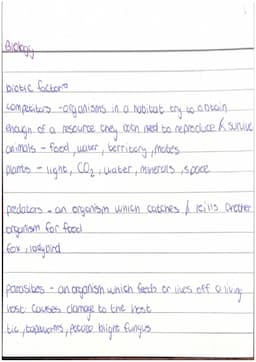 Biology
biotic factors
competitors - organisms in a habitat try to obtain
enough of a resource they both need to reproduce & survive
animals - food, water, territory, mates
plants - light, CO2, water, minerals, space
predators - an organism which catches & kills another
organism for food
fox, ladybird
parasites - an organism which feeds or lives off a living
host. causes damage to the host
tic, tapeworms, potato blight fungus